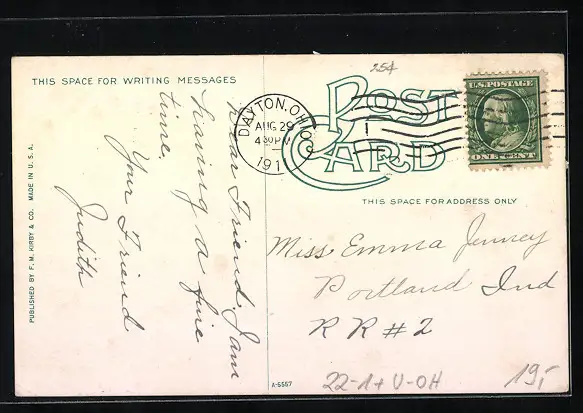 THIS SPACE FOR WRITING MESSAGES
Dear Friend, I am
having a fine
time.
Your Friend
Judith
PUBLISHED BY F. M. KIRBY & CO. MADE IN U. S. A.
25¢
POST CARD
DAYTON, OHIO
AUG 29
4 30 PM
191
U.S. POSTAGE
ONE CENT
THIS SPACE FOR ADDRESS ONLY
Miss Emma Jenney
Portland Ind
R R # 2
A-5557
22-1+ U-OH
19,-